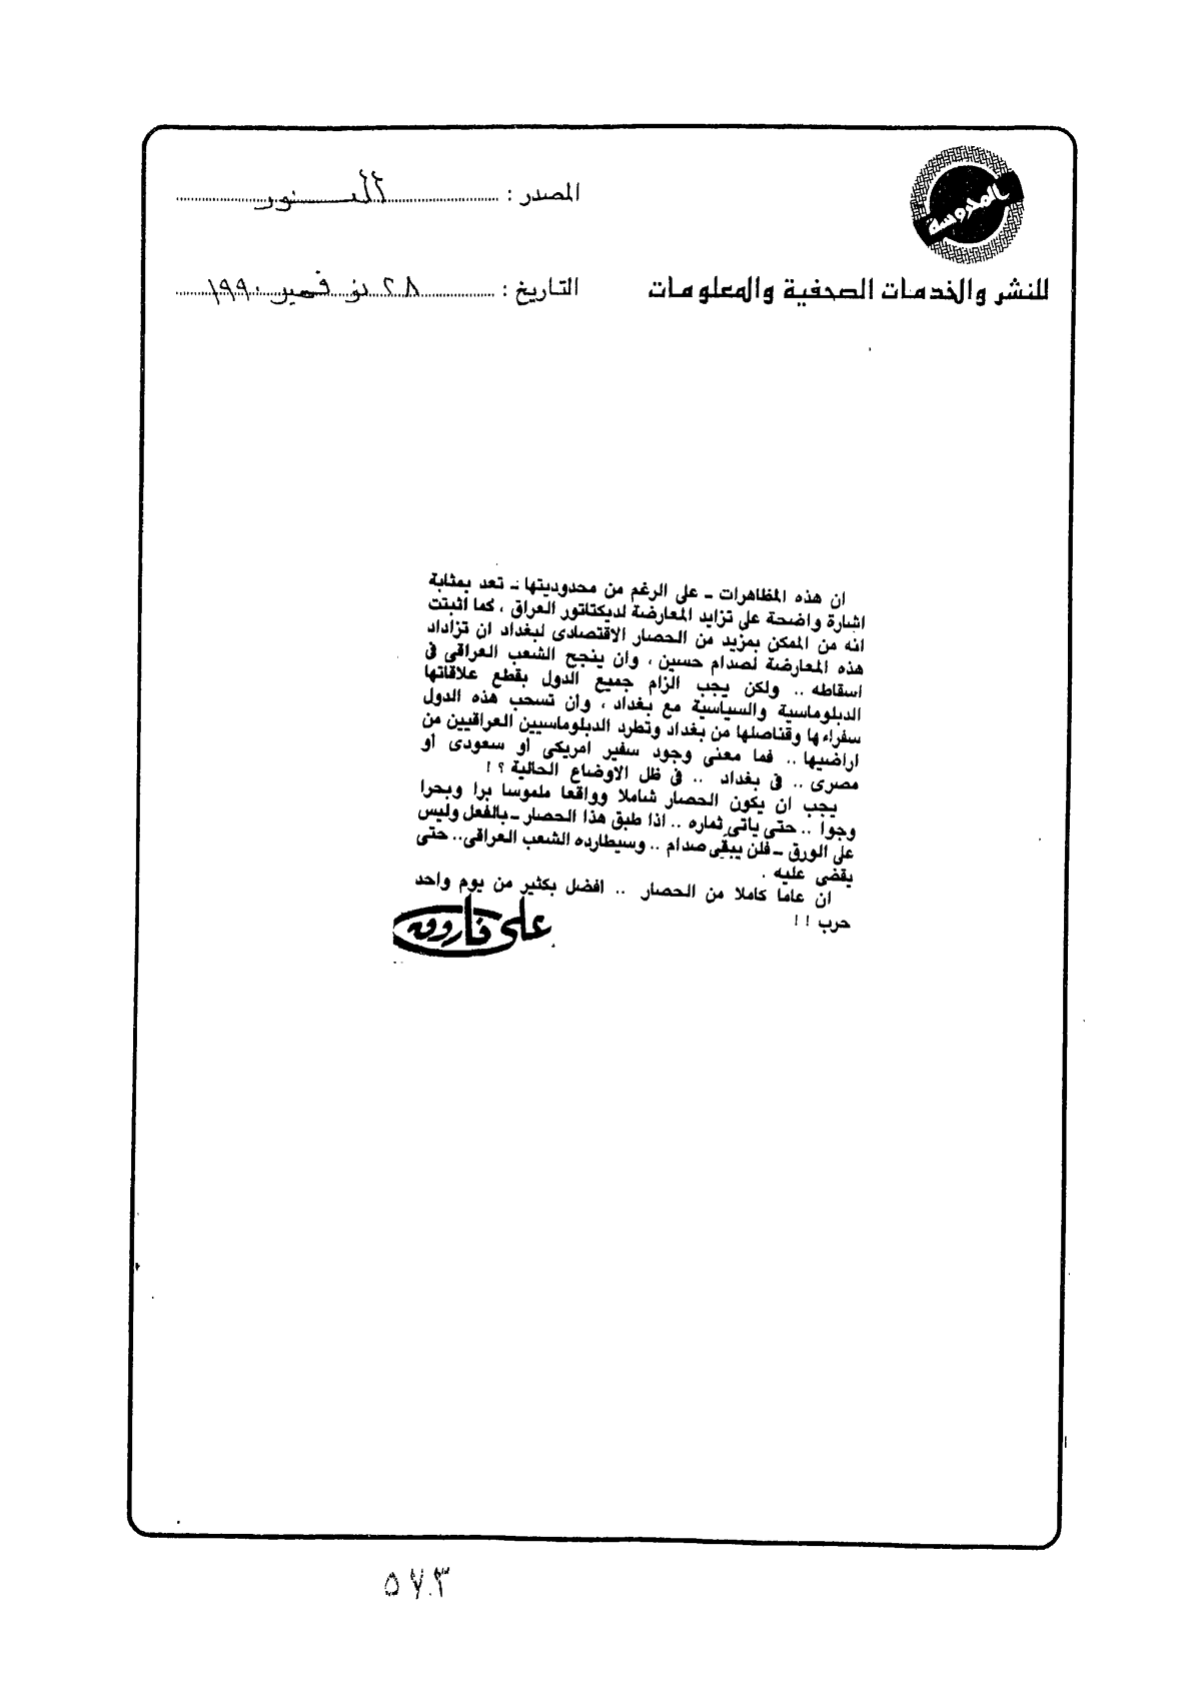 المصدر : النور
للنشر والخدمات الصحفية والمعلومات
التاريخ : ٢٨ نوفمبر ١٩٩٠
ان هذه المظاهرات ـ على الرغم من محدوديتها ـ تعد بمثابة
اشارة واضحة على تزايد المعارضة لديكتاتور العراق ، كما اثبتت
انه من الممكن بمزيد من الحصار الاقتصادى لبغداد ان تزاداد
هذه المعارضة لصدام حسين ، وان ينجح الشعب العراقى فى
اسقاطه .. ولكن يجب الزام جميع الدول بقطع علاقاتها
الدبلوماسية والسياسية مع بغداد ، وان تسحب هذه الدول
سفراءها وقناصلها من بغداد وتطرد الدبلوماسيين العراقيين من
اراضيها .. فما معنى وجود سفير امريكى أو سعودى أو
مصرى .. فى بغداد .. فى ظل الاوضاع الحالية ؟ !
يجب ان يكون الحصار شاملا وواقعا ملموسا برا وبحرا
وجوا .. حتى ياتى ثماره .. اذا طبق هذا الحصار ـ بالفعل وليس
على الورق ـ فلن يبقى صدام .. وسيطارده الشعب العراقى .. حتى
يقضى عليه .
ان عاما كاملا من الحصار .. افضل بكثير من يوم واحد
حرب ! !
على فاروق
٥٧٣